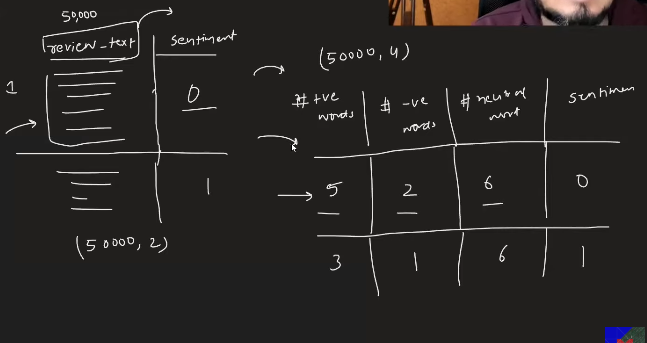 50,000
review_text sentiment
1
0
1
(50000, 2)
(50000, 4)
# +ve words # -ve words # neutral word sentimen
5 2 6 0
3 1 6 1